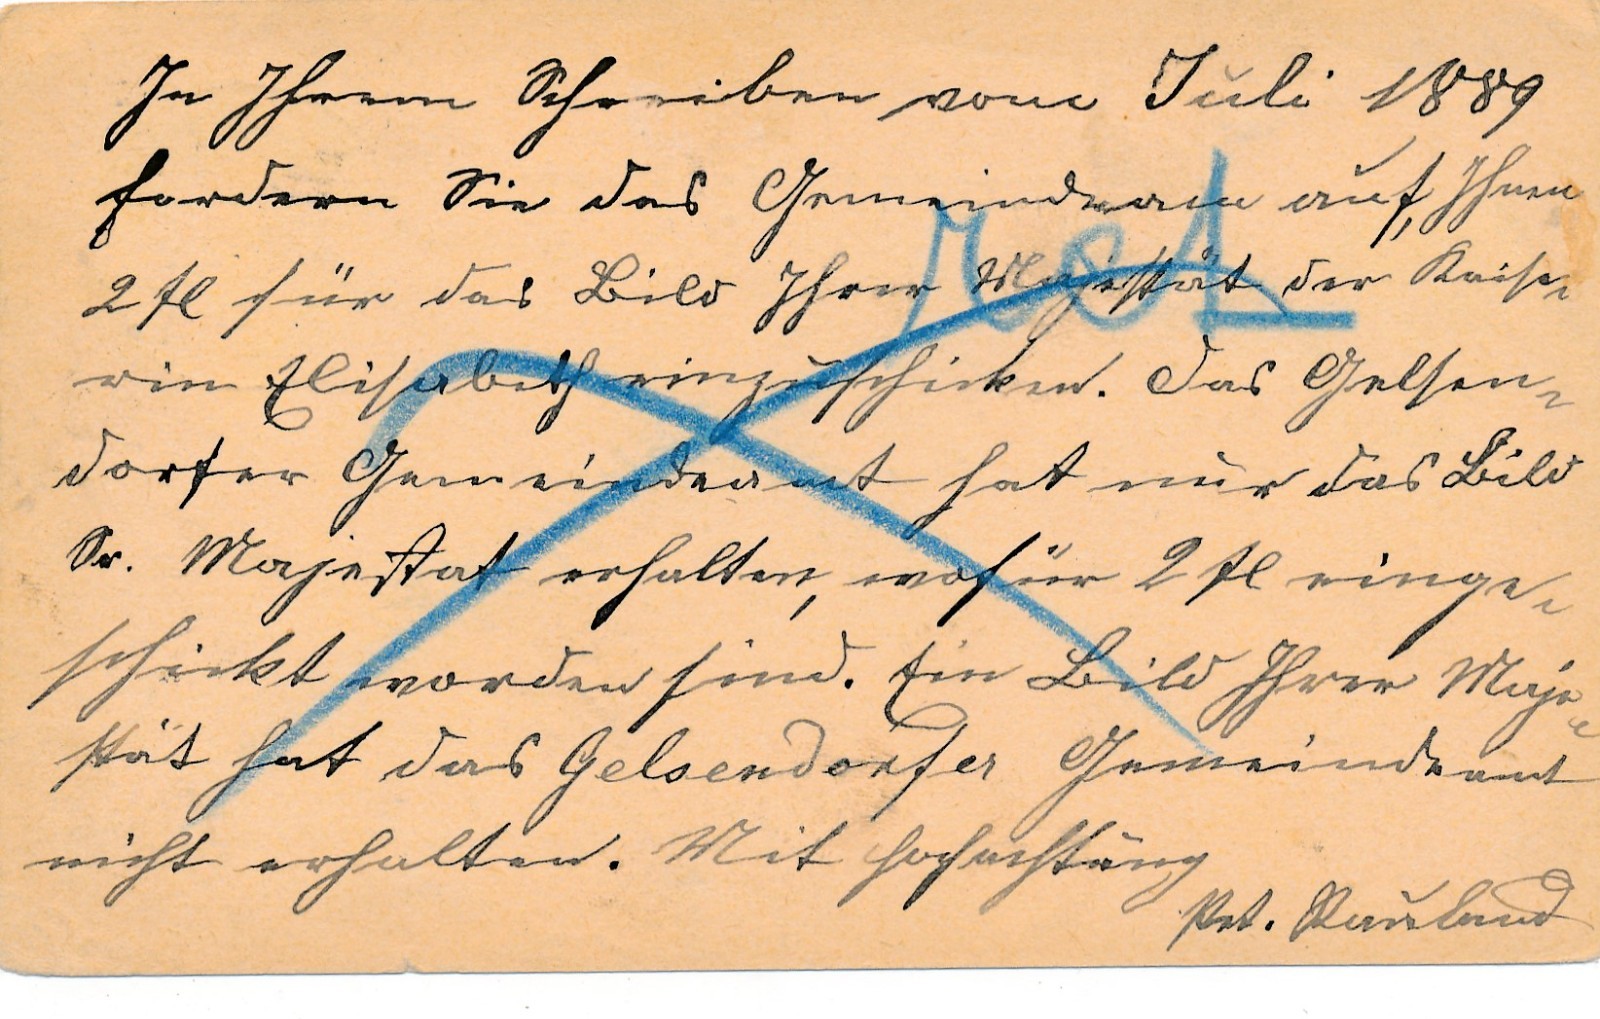 In Ihrem Schreiben vom Juli 1889
fordern Sie das Gemeindeam auf, Ihnen
2 fl für das Bild Ihrer Majestät der Kaise-
rin Elisabeth einzuschicken. Das Gelsen-
dorfer Gemeindeamt hat nur das Bild
Sr. Majestat erhalten, wofür 2 fl einge-
schickt worden sind. Ein Bild Ihrer Maje-
stät hat das Gelsendorfer Gemeindeamt
nicht erhalten. Mit Hochachtung
Pet.